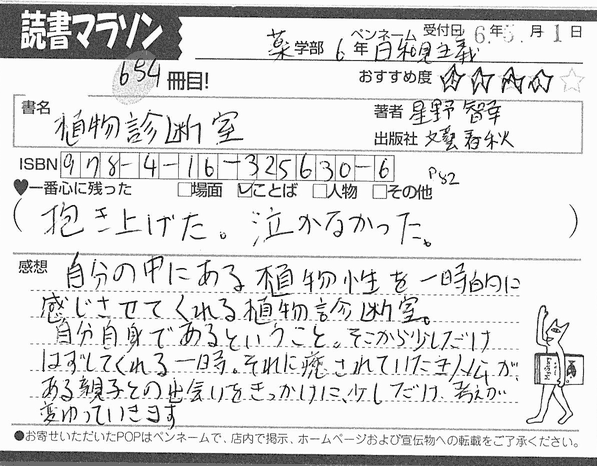 読書マラソン
薬学部 6年 ペンネーム 日和見主義 受付日 6年5月1日
654冊目!
おすすめ度 ★★★★☆
書名 植物診断室
著者 星野 智幸
出版社 文藝春秋
ISBN 978-4-16-325630-6
♥一番心に残った □場面 ☑ことば □人物 □その他 P82
(抱き上げた。泣かなかった。)
感想 自分の中にある植物性を一時的に
感じさせてくれる植物診断室。
自分自身であるということ。そこから少しだけ
はずしてくれる一時。それに癒されていた主人公が、
ある親子との出会いをきっかけに、少しだけ、考えが
変わっていきます
●お寄せいただいたPOPはペンネームで、店内で掲示、ホームページおよび宣伝物への転載をご了承ください。